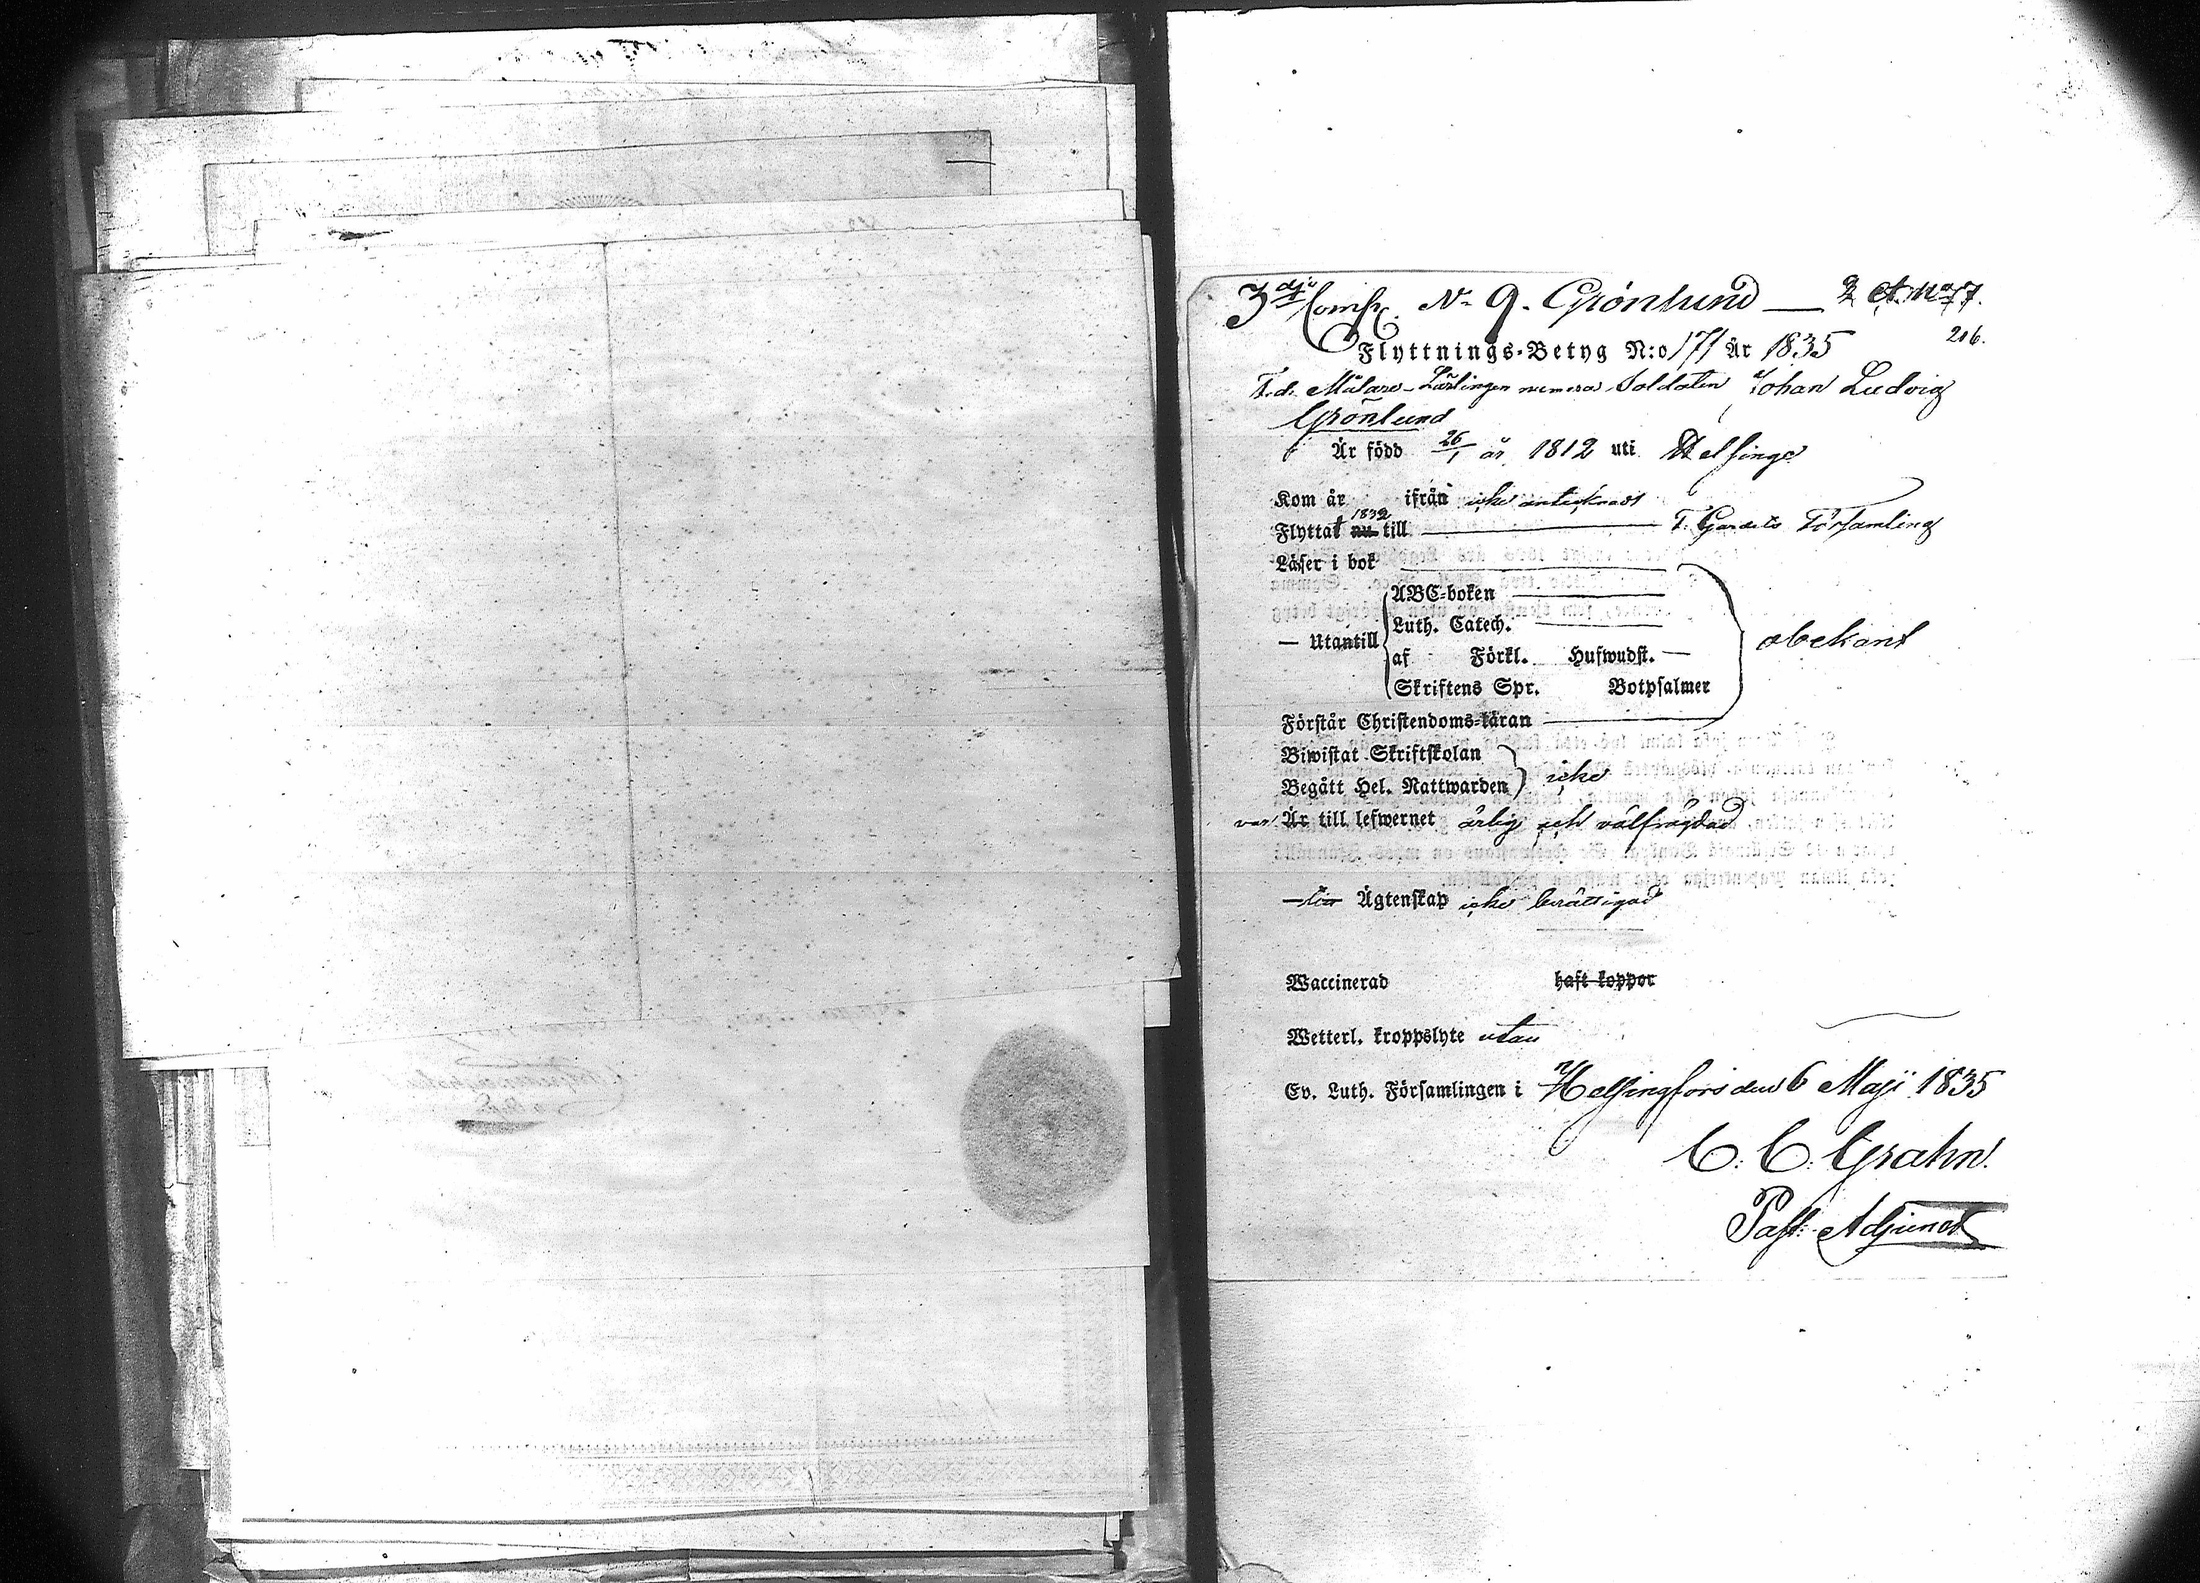 3dje Comp. No 9. Grönlund —
206.
Flyttnings-Betyg N:o 171 År 1835
F.d. Målare-Lärlingen numera Soldaten Johan Ludvig
Grönlund
Är född 26/1 år 1812 uti Helsinge
Kom år ifrån icke antecknadt
1832
Flyttat nu till T. Gardets Församling
Läser i bok
ABC-boken
— Utantill Luth. Catech.
obekant
af Förkl. Hufwudst. —
Skriftens Spr. Botpsalmer
Förstår Christendoms-läran
Biwistat Skriftskolan
icke
Begått Hel. Nattwarden
var Är till lefwernet ärlig och välfrägdad
Ägtenskap icke berättigad
Waccinerad haft koppor
Wetterl. kroppslyte utan
Ev. Luth. Församlingen i Helsingfors den 6 Maji 1835
C. C. Grahn.
Past. Adjunct